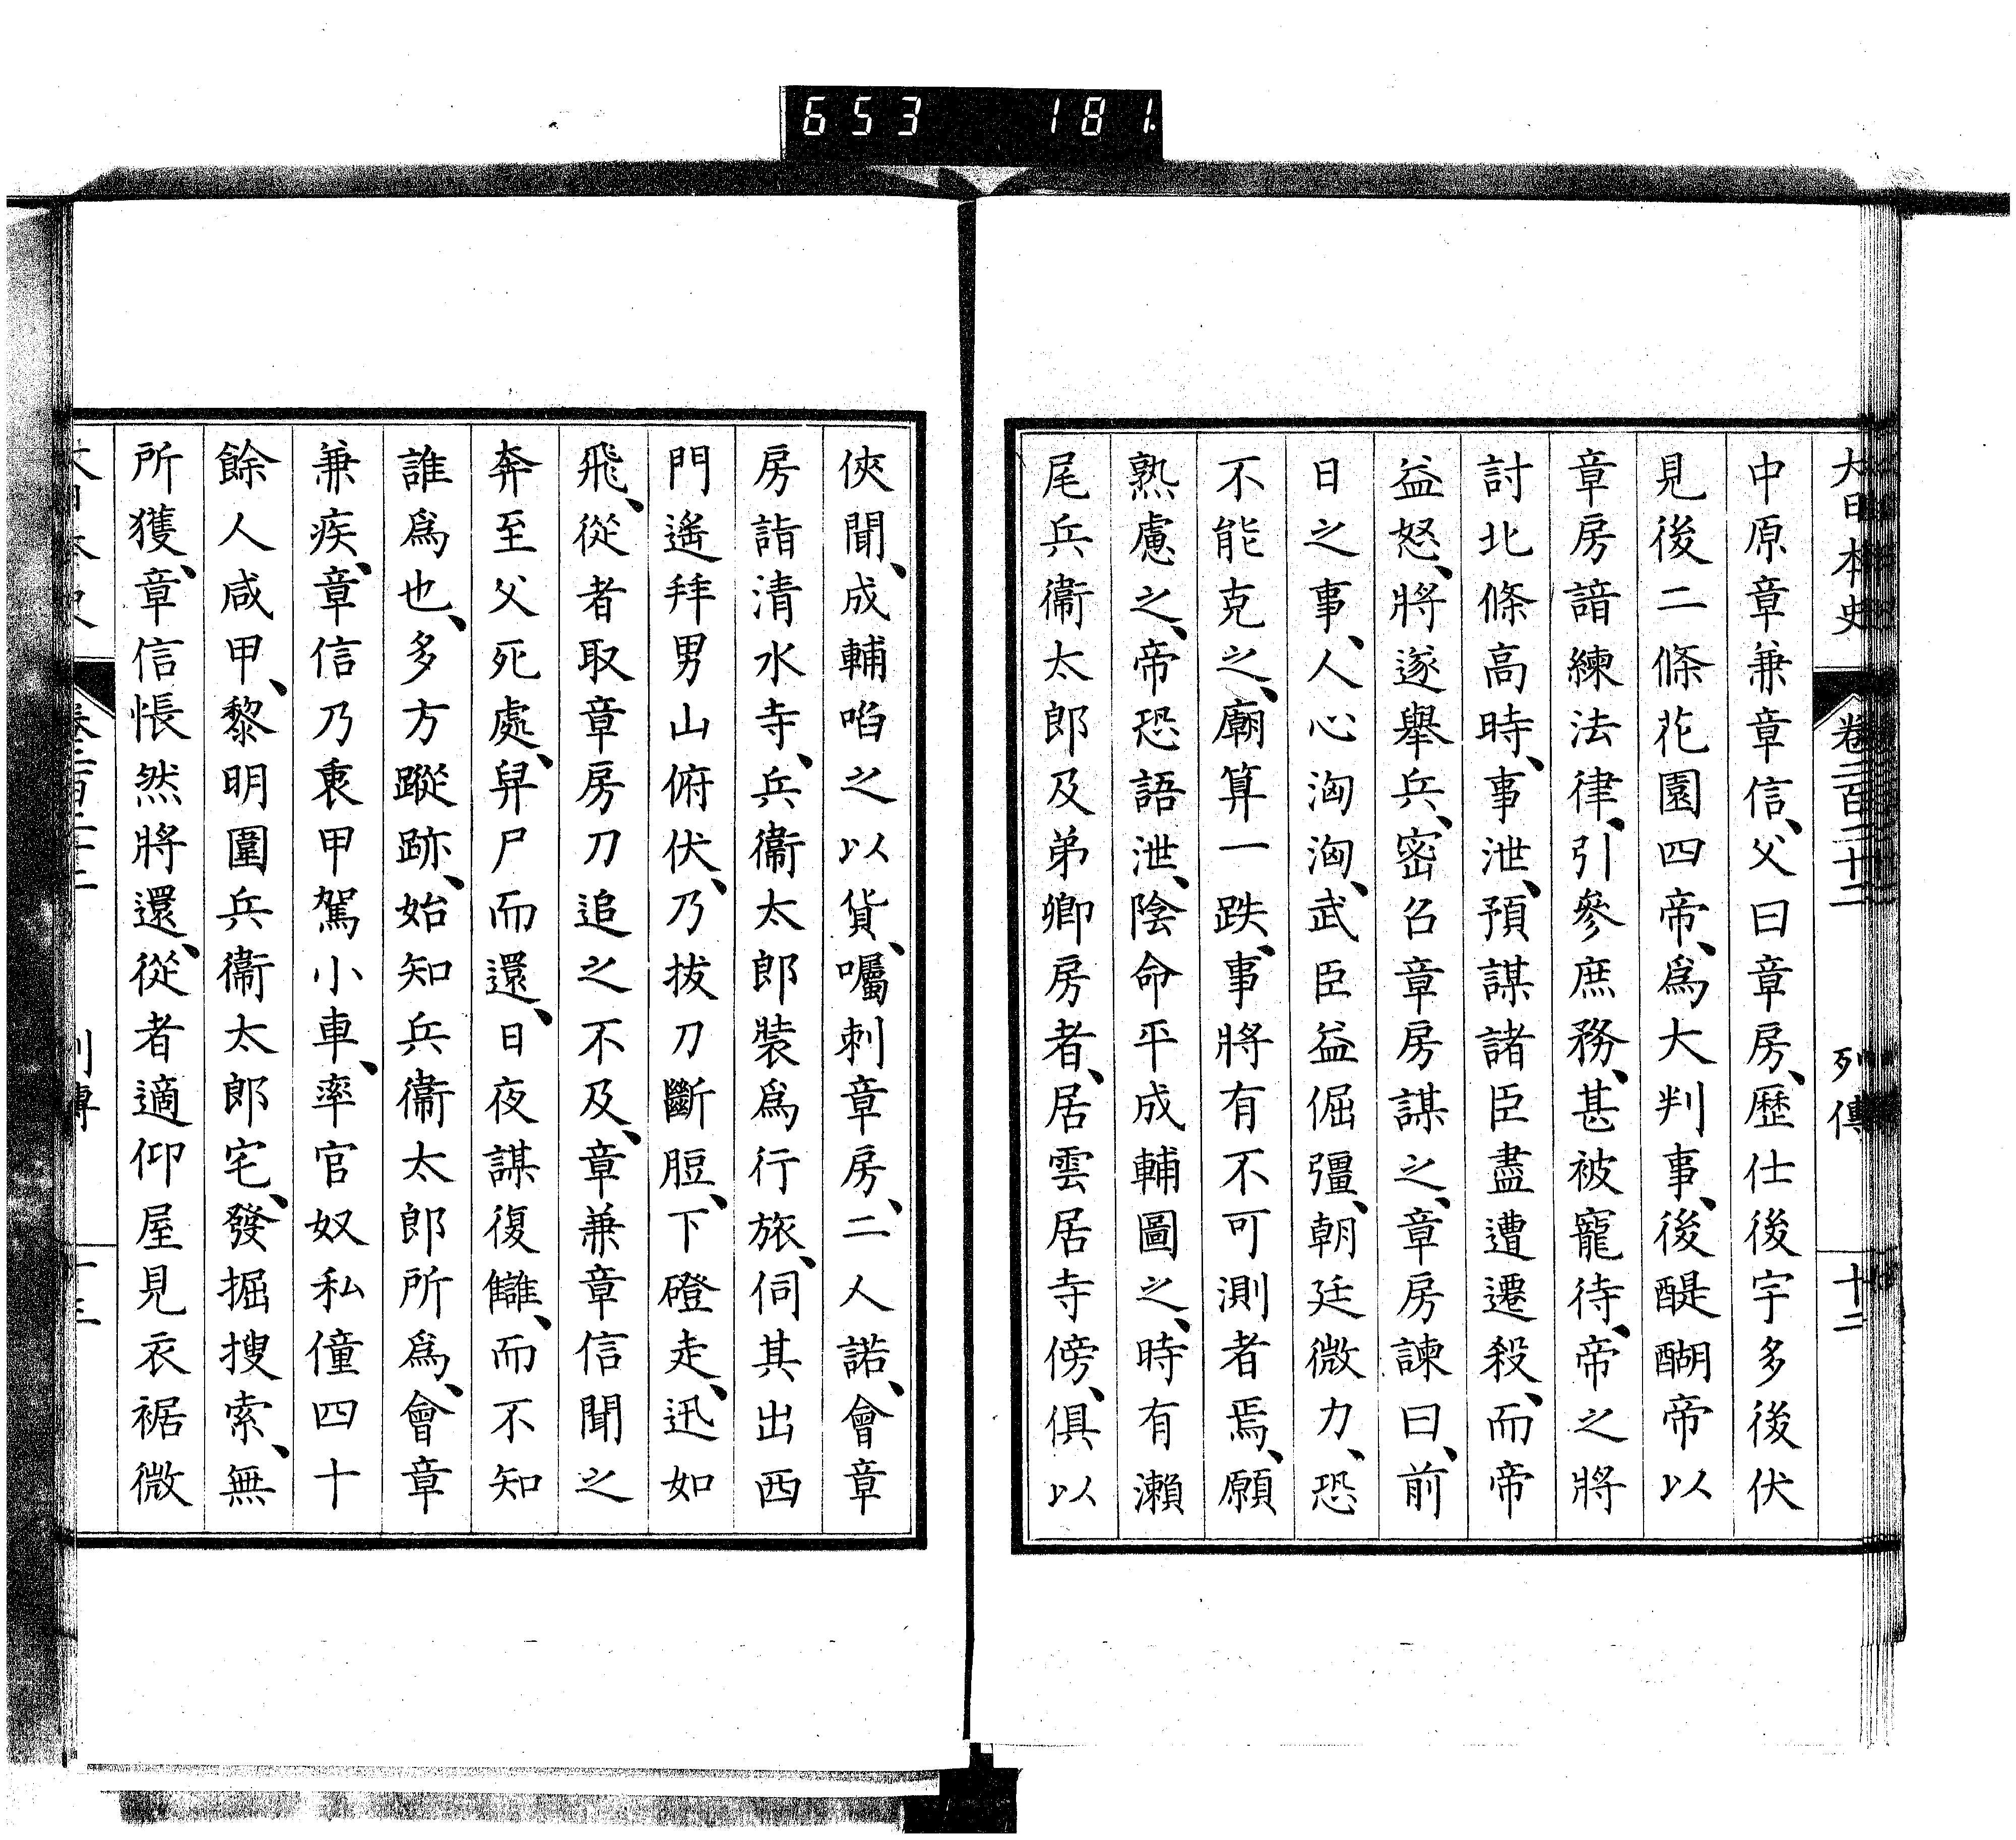 653 181
大日本史 卷二百二十二 列傳 十二
中原章兼章信、父曰章房、歷仕後宇多後伏
見後二條花園四帝、爲大判事、後醍醐帝以
章房諳練法律、引參庶務、甚被寵待、帝之將
討北條高時、事泄、預謀諸臣盡遭遷殺、而帝
益怒、將遂舉兵、密召章房謀之、章房諫曰、前
日之事、人心洶洶、武臣益倔彊、朝廷微力、恐
不能克之、廟算一跌、事將有不可測者焉、願
熟慮之、帝恐語泄、陰命平成輔圖之、時有瀨
尾兵衞太郎及弟卿房者、居雲居寺傍、俱以
俠聞、成輔啗之以貨、囑刺章房、二人諾、會章
房詣清水寺、兵衞太郎裝爲行旅、伺其出西
門遙拜男山俯伏、乃拔刀斷脰、下磴走、迅如
飛、從者取章房刀追之不及、章兼章信聞之
奔至父死處、舁尸而還、日夜謀復讎、而不知
誰爲也、多方蹤跡、始知兵衞太郎所爲、會章
兼疾、章信乃衷甲駕小車、率官奴私僮四十
餘人咸甲、黎明圍兵衞太郎宅、發掘搜索、無
所獲、章信悵然將還、從者適仰屋見衣裾微